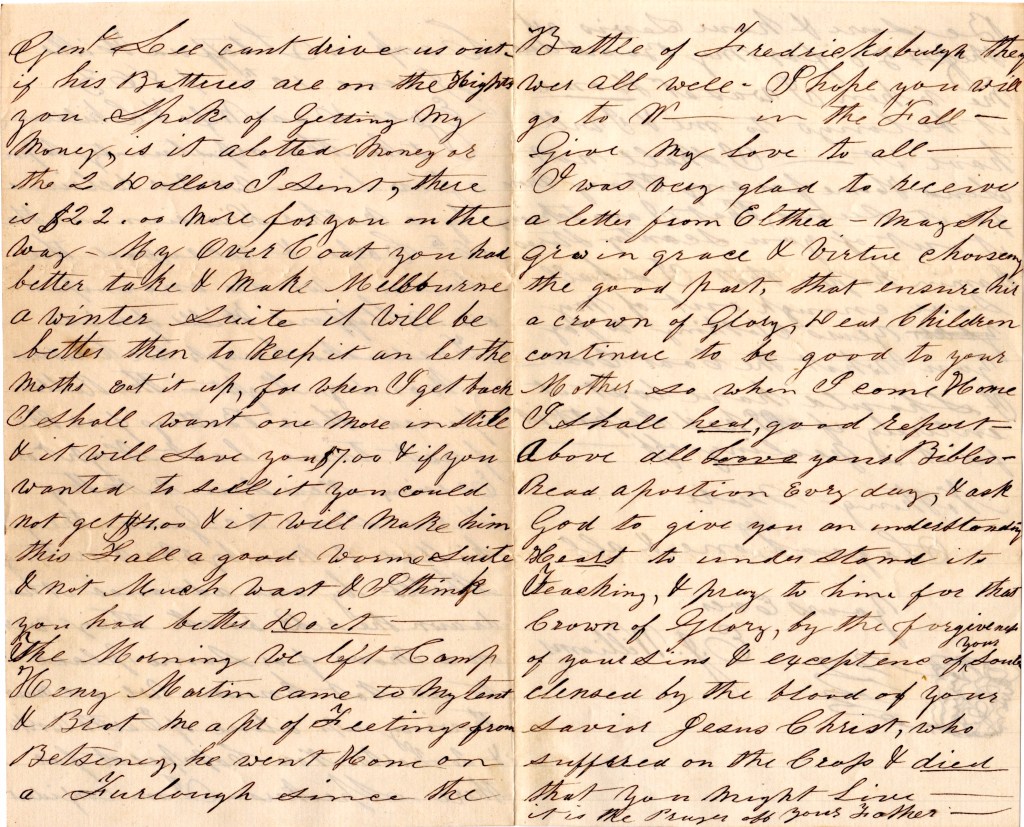 Genl Lee cant drive us out -
if his Batteres are on the Hights
you Spoke of Getting My
Money, is it alotted Money or
the 2 Dollars I sent, there
is $22.00 more for you on the
way - My Over Coat you had
better take & make Melbourne
a winter suite it will be
better then to keep it an let the
Moths eat it up, for when I get back
I shall want one more in still
& it will save you $7.00 & if you
wanted to sell it you could
not get $4.00 & it will make him
this Fall a good worme suite
& not Much wast & I think
you had better Do it —
The Morning we left Camp
Henry Martin came to My tent
& Brot me a pr of Feetings from
Betseney, he went Home on
a Furlough since the
Battle of Fredricksburgh they
wer all well - I hope you will
go to N— in the Fall —
Give My love to all —
I was very glad to receive
a letter from Elthea - may she
grow in grace & virtue chooseing
the good part, that ensure hir
a crown of Glory, Dear Children
continue to be good to your
Mother so when I come Home
I shall hear, good report -
Above all Loove your Bibles -
Read a postion Every day, & ask
God to give you an understanding
Heart to under stand its
Teaching, & pray to him for that
Crown of Glory, by the forgiveness
of your sins & exceptence of your Souls
clensed by the blood of your
savior Jesus Christ, who
suffered on the Cross & died
that you Might Live —
it is the Prayer off Your Father -